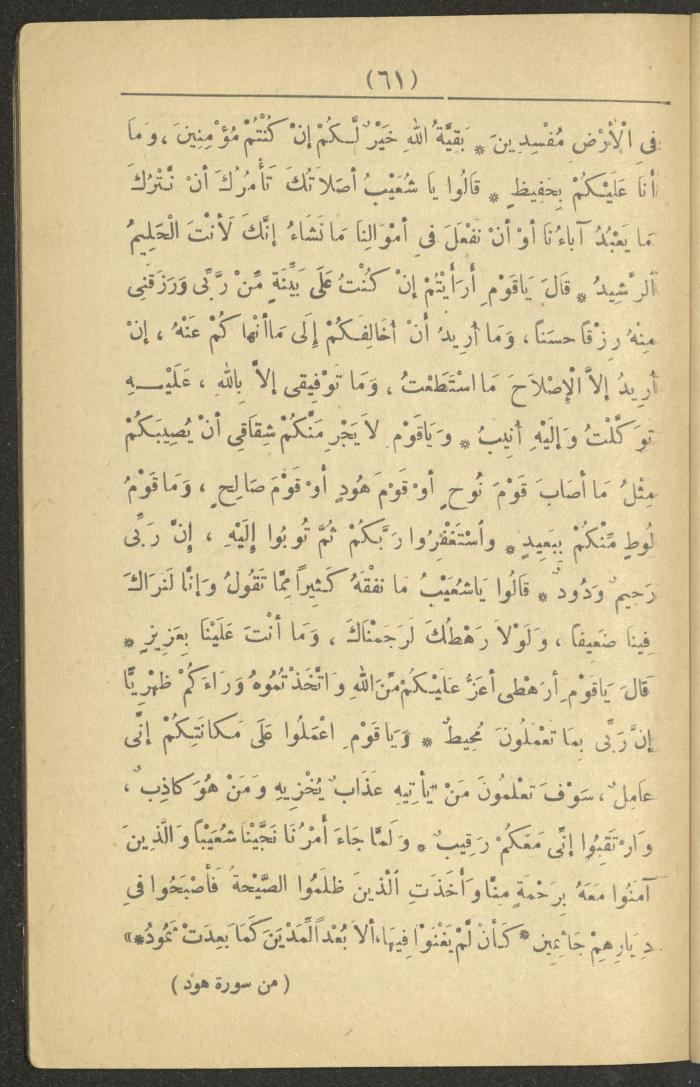 (٦١)
فِى الْأَرْضِ مُفْسِدِينَ * بَقِيَّةُ اللهِ خَيْرٌ لَّكُمْ إِنْ كُنْتُمْ مُؤْمِنِينَ ، وَمَا
أَنَا عَلَيْكُمْ بِحَفِيظٍ * قَالُوا يَا شُعَيْبُ أَصَلَاتُكَ تَأْمُرُكَ أَنْ نَّتْرُكَ
مَا يَعْبُدُ آبَاءُنَا أَوْ أَنْ نَفْعَلَ فِى أَمْوَالِنَا مَا نَشَاءُ إِنَّكَ لَأَنْتَ الْحَلِيمُ
الرَّشِيدُ * قَالَ يَاقَوْمِ أَرَأَيْتُمْ إِنْ كُنْتُ عَلَى بَيِّنَةٍ مِّنْ رَّبِّى وَرَزَقَنِى
مِنْهُ رِزْقًا حَسَنًا ، وَمَا أُرِيدُ أَنْ أُخَالِفَكُمْ إِلَى مَاأَنْهَا كُمْ عَنْهُ ، إِنْ
أُرِيدُ إِلاَّ الْإِصْلَاحَ مَا اسْتَطَعْتُ ، وَمَا تَوْفِيقِى إِلاَّ بِاللهِ ، عَلَيْهِ
تَوَكَّلْتُ وَإِلَيْهِ أُنِيبُ * وَيَاقَوْمِ لاَ يَجْرِمَنَّكُمْ شِقَاقِى أَنْ يُصِيبَكُمْ
مِثْلُ مَا أَصَابَ قَوْمَ نُوحٍ أَوْ قَوْمَ هُودٍ أَوْ قَوْمَ صَالِحٍ ، وَمَا قَوْمُ
لُوطٍ مِّنْكُمْ بِبَعِيدٍ * وَاسْتَغْفِرُوا رَبَّكُمْ ثُمَّ تُوبُوا إِلَيْهِ ، إِنَّ رَبِّى
رَحِيمٌ وَدُودٌ * قَالُوا يَاشُعَيْبُ مَا نَفْقَهُ كَثِيرًا مِمَّا تَقُولُ وَإِنَّا لَنَرَاكَ
فِينَا ضَعِيفًا ، وَلَوْلاَ رَهْطُكَ لَرَجَمْنَاكَ ، وَمَا أَنْتَ عَلَيْنَا بِعَزِيزٍ *
قَالَ يَاقَوْمِ أَرَهْطِى أَعَزُّ عَلَيْكُمْ مِّنَ اللهِ وَاتَّخَذْتُمُوهُ وَرَاءَكُمْ ظِهْرِيًّا
إِنَّ رَبِّى بِمَا تَعْمَلُونَ مُحِيطٌ * وَيَا قَوْمِ اعْمَلُوا عَلَى مَكَانَتِكُمْ إِنِّى
عَامِلٌ ، سَوْفَ تَعْلَمُونَ مَنْ يَأْتِيهِ عَذَابٌ يُخْزِيهِ وَمَنْ هُوَ كَاذِبٌ ،
وَارْتَقِبُوا إِنِّى مَعَكُمْ رَقِيبٌ * وَلَمَّا جَاءَ أَمْرُنَا نَجَّيْنَا شُعَيْبًا وَالَّذِينَ
آمَنُوا مَعَهُ بِرَحْمَةٍ مِنَّا وَأَخَذَتِ الَّذِينَ ظَلَمُوا الصَّيْحَةُ فَأَصْبَحُوا فِى
دِيَارِهِمْ جَاثِمِين * كَأَنْ لَمْ يَغْنَوْا فِيهَا، أَلاَ بُعْدًا لِّمَدْيَنَ كَمَا بَعِدَتْ ثَمُودُ *»
( من سورة هود )